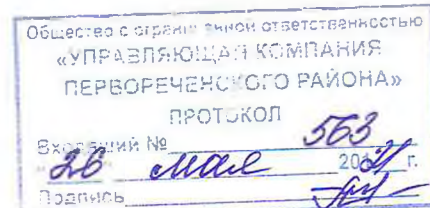 Общество с ограниченной ответственностью
«УПРАВЛЯЮЩАЯ КОМПАНИЯ
ПЕРВОРЕЧЕНСКОГО РАЙОНА»
ПРОТОКОЛ
Входящий № 563
26 мая 20 г.
Подпись